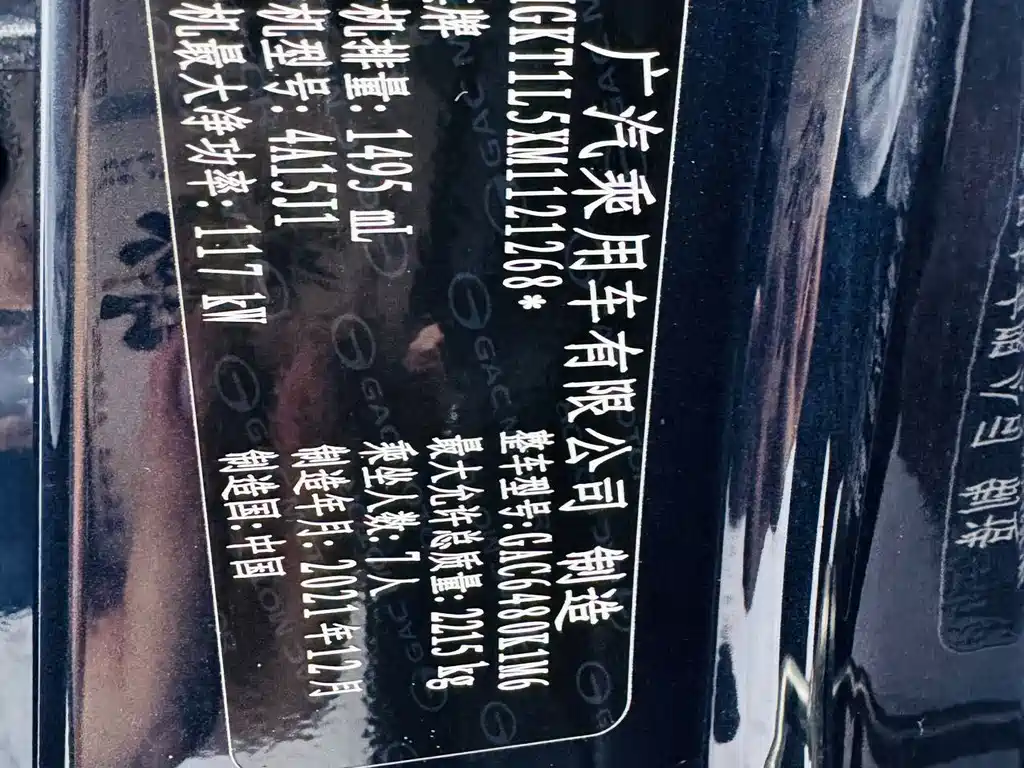 广汽乘用车有限公司 制造
GKT1L5XM1121268*
整车型号:GAC6480K1M6
牌
最大允许总质量:2215kg
机排量:1495mL
乘坐人数:7人
机型号:4A15J1
制造年月:2021年12月
机最大净功率:117kW
制造国:中国